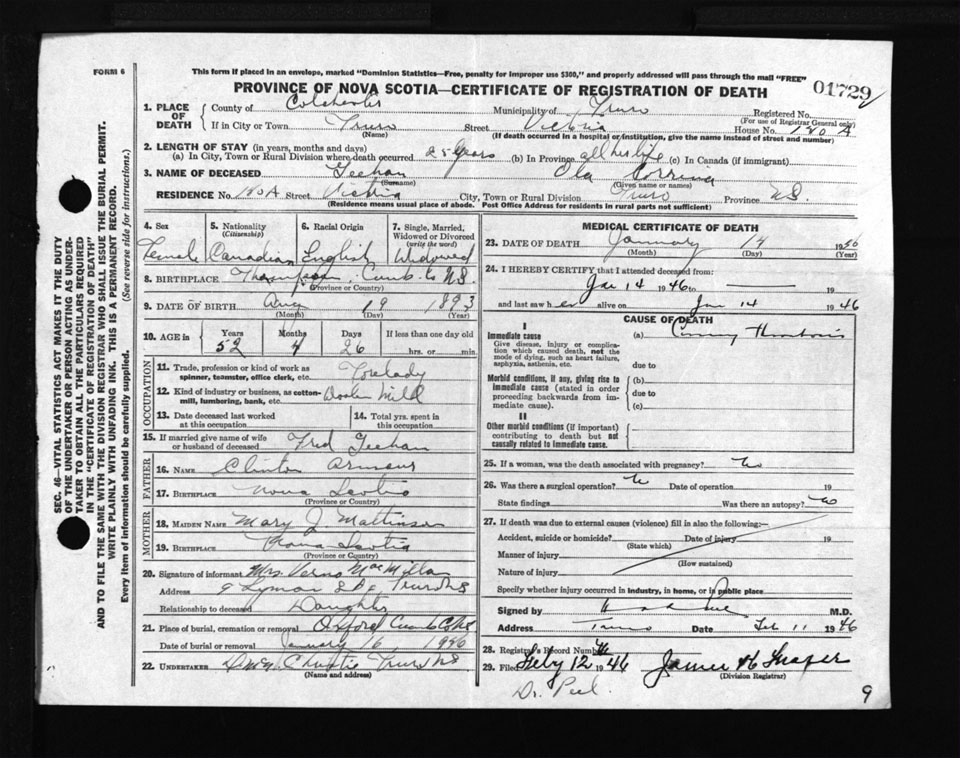 FORM 6
This form if placed in an envelope, marked "Dominion Statistics—Free, penalty for improper use $300," and properly addressed will pass through the mail "FREE"
PROVINCE OF NOVA SCOTIA—CERTIFICATE OF REGISTRATION OF DEATH
01729
1. PLACE OF DEATH County of Colchester Municipality of Truro Registered No.
(For use of Registrar General only)
If in City or Town Truro Street Victoria House No. 180 A
(Name) (If death occurred in a hospital or institution, give the name instead of street and number)
2. LENGTH OF STAY (in years, months and days)
(a) In City, Town or Rural Division where death occurred 25 years (b) In Province all her life (c) In Canada (if immigrant)
3. NAME OF DECEASED Geehan Ola Corrina
(Surname) (Given name or names)
RESIDENCE No. 180A Street Victoria City, Town or Rural Division Truro Province N.S.
(Residence means usual place of abode. Post Office Address for residents in rural parts not sufficient)
4. Sex Female
5. Nationality (Citizenship) Canadian
6. Racial Origin English
7. Single, Married, Widowed or Divorced (write the word) Widowed
8. BIRTHPLACE Thompson Cumb. Co NS.
(Province or Country)
9. DATE OF BIRTH Aug 19 1893
(Month) (Day) (Year)
10. AGE in Years 52 Months 4 Days 26 If less than one day old
hrs. or min.
OCCUPATION
11. Trade, profession or kind of work as spinner, teamster, office clerk, etc. Forelady
12. Kind of industry or business, as cotton-mill, lumbering, bank, etc. Woolen Mill
13. Date deceased last worked at this occupation
14. Total yrs. spent in this occupation
15. If married give name of wife or husband of deceased Fred Geehan
FATHER
16. NAME Clinton
17. BIRTHPLACE Nova Scotia
(Province or Country)
MOTHER
18. MAIDEN NAME Mary J. Mattinson
19. BIRTHPLACE Nova Scotia
(Province or Country)
20. Signature of informant Mrs. Verno MacMillan
Address 9 Lyman St Truro NS
Relationship to deceased Daughter
21. Place of burial, cremation or removal Oxford Cumb Co NS
Date of burial or removal January 16 1946
22. UNDERTAKER Christie Truro NS
(Name and address)
MEDICAL CERTIFICATE OF DEATH
23. DATE OF DEATH January 14 19
(Month) (Day) (Year)
24. I HEREBY CERTIFY that I attended deceased from:
Jan 14 1946 to 19
and last saw her alive on Jan 14 1946
CAUSE OF DEATH
I
Immediate cause (a) Coronary Thrombosis
Give disease, injury or complication which caused death, not the mode of dying, such as heart failure, asphyxia, asthenia, etc.
due to
Morbid conditions, if any, giving rise to immediate cause (stated in order proceeding backwards from immediate cause).
(b)
due to
(c)
II
Other morbid conditions (if important) contributing to death but not causally related to immediate cause.
25. If a woman, was the death associated with pregnancy? No
26. Was there a surgical operation? No Date of operation 19
State findings Was there an autopsy? No
27. If death was due to external causes (violence) fill in also the following:—
Accident, suicide or homicide? Date of injury 19
(State which)
Manner of injury
(How sustained)
Nature of injury
Specify whether injury occurred in industry, in home, or in public place
Signed by M.D.
Address Truro Date Feb 11 1946
28. Registrar's Record Number
29. Filed Feby 12 1946 James H
(Division Registrar)
Dr. Peel.
9
SEC. 46—VITAL STATISTICS ACT MAKES IT THE DUTY
OF THE UNDERTAKER OR PERSON ACTING AS UNDER-
TAKER TO OBTAIN ALL THE PARTICULARS REQUIRED
IN THE "CERTIFICATE OF REGISTRATION OF DEATH"
AND TO FILE THE SAME WITH THE DIVISION REGISTRAR WHO SHALL ISSUE THE BURIAL PERMIT.
WRITE PLAINLY WITH UNFADING INK. THIS IS A PERMANENT RECORD.
Every item of information should be carefully supplied. (See reverse side for instructions.)